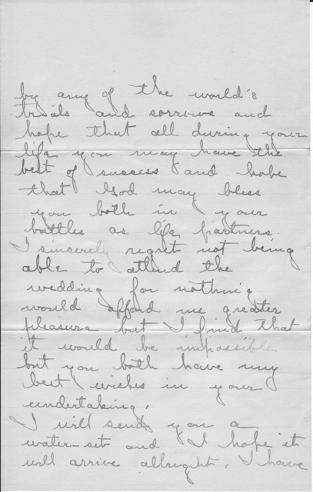 by any of the world's
trials and sorrows and
hope that all during your
life you may have the
best of success and hope
that God may bless
you both in your
battles as life partners.
I sincerely regret not being
able to attend the
wedding for nothing
would afford me greater
pleasure but I find that
it would be impossible
but you both have my
best wishes in your
undertaking.
I will send you a
water-set and I hope it
will arrive allright. I have